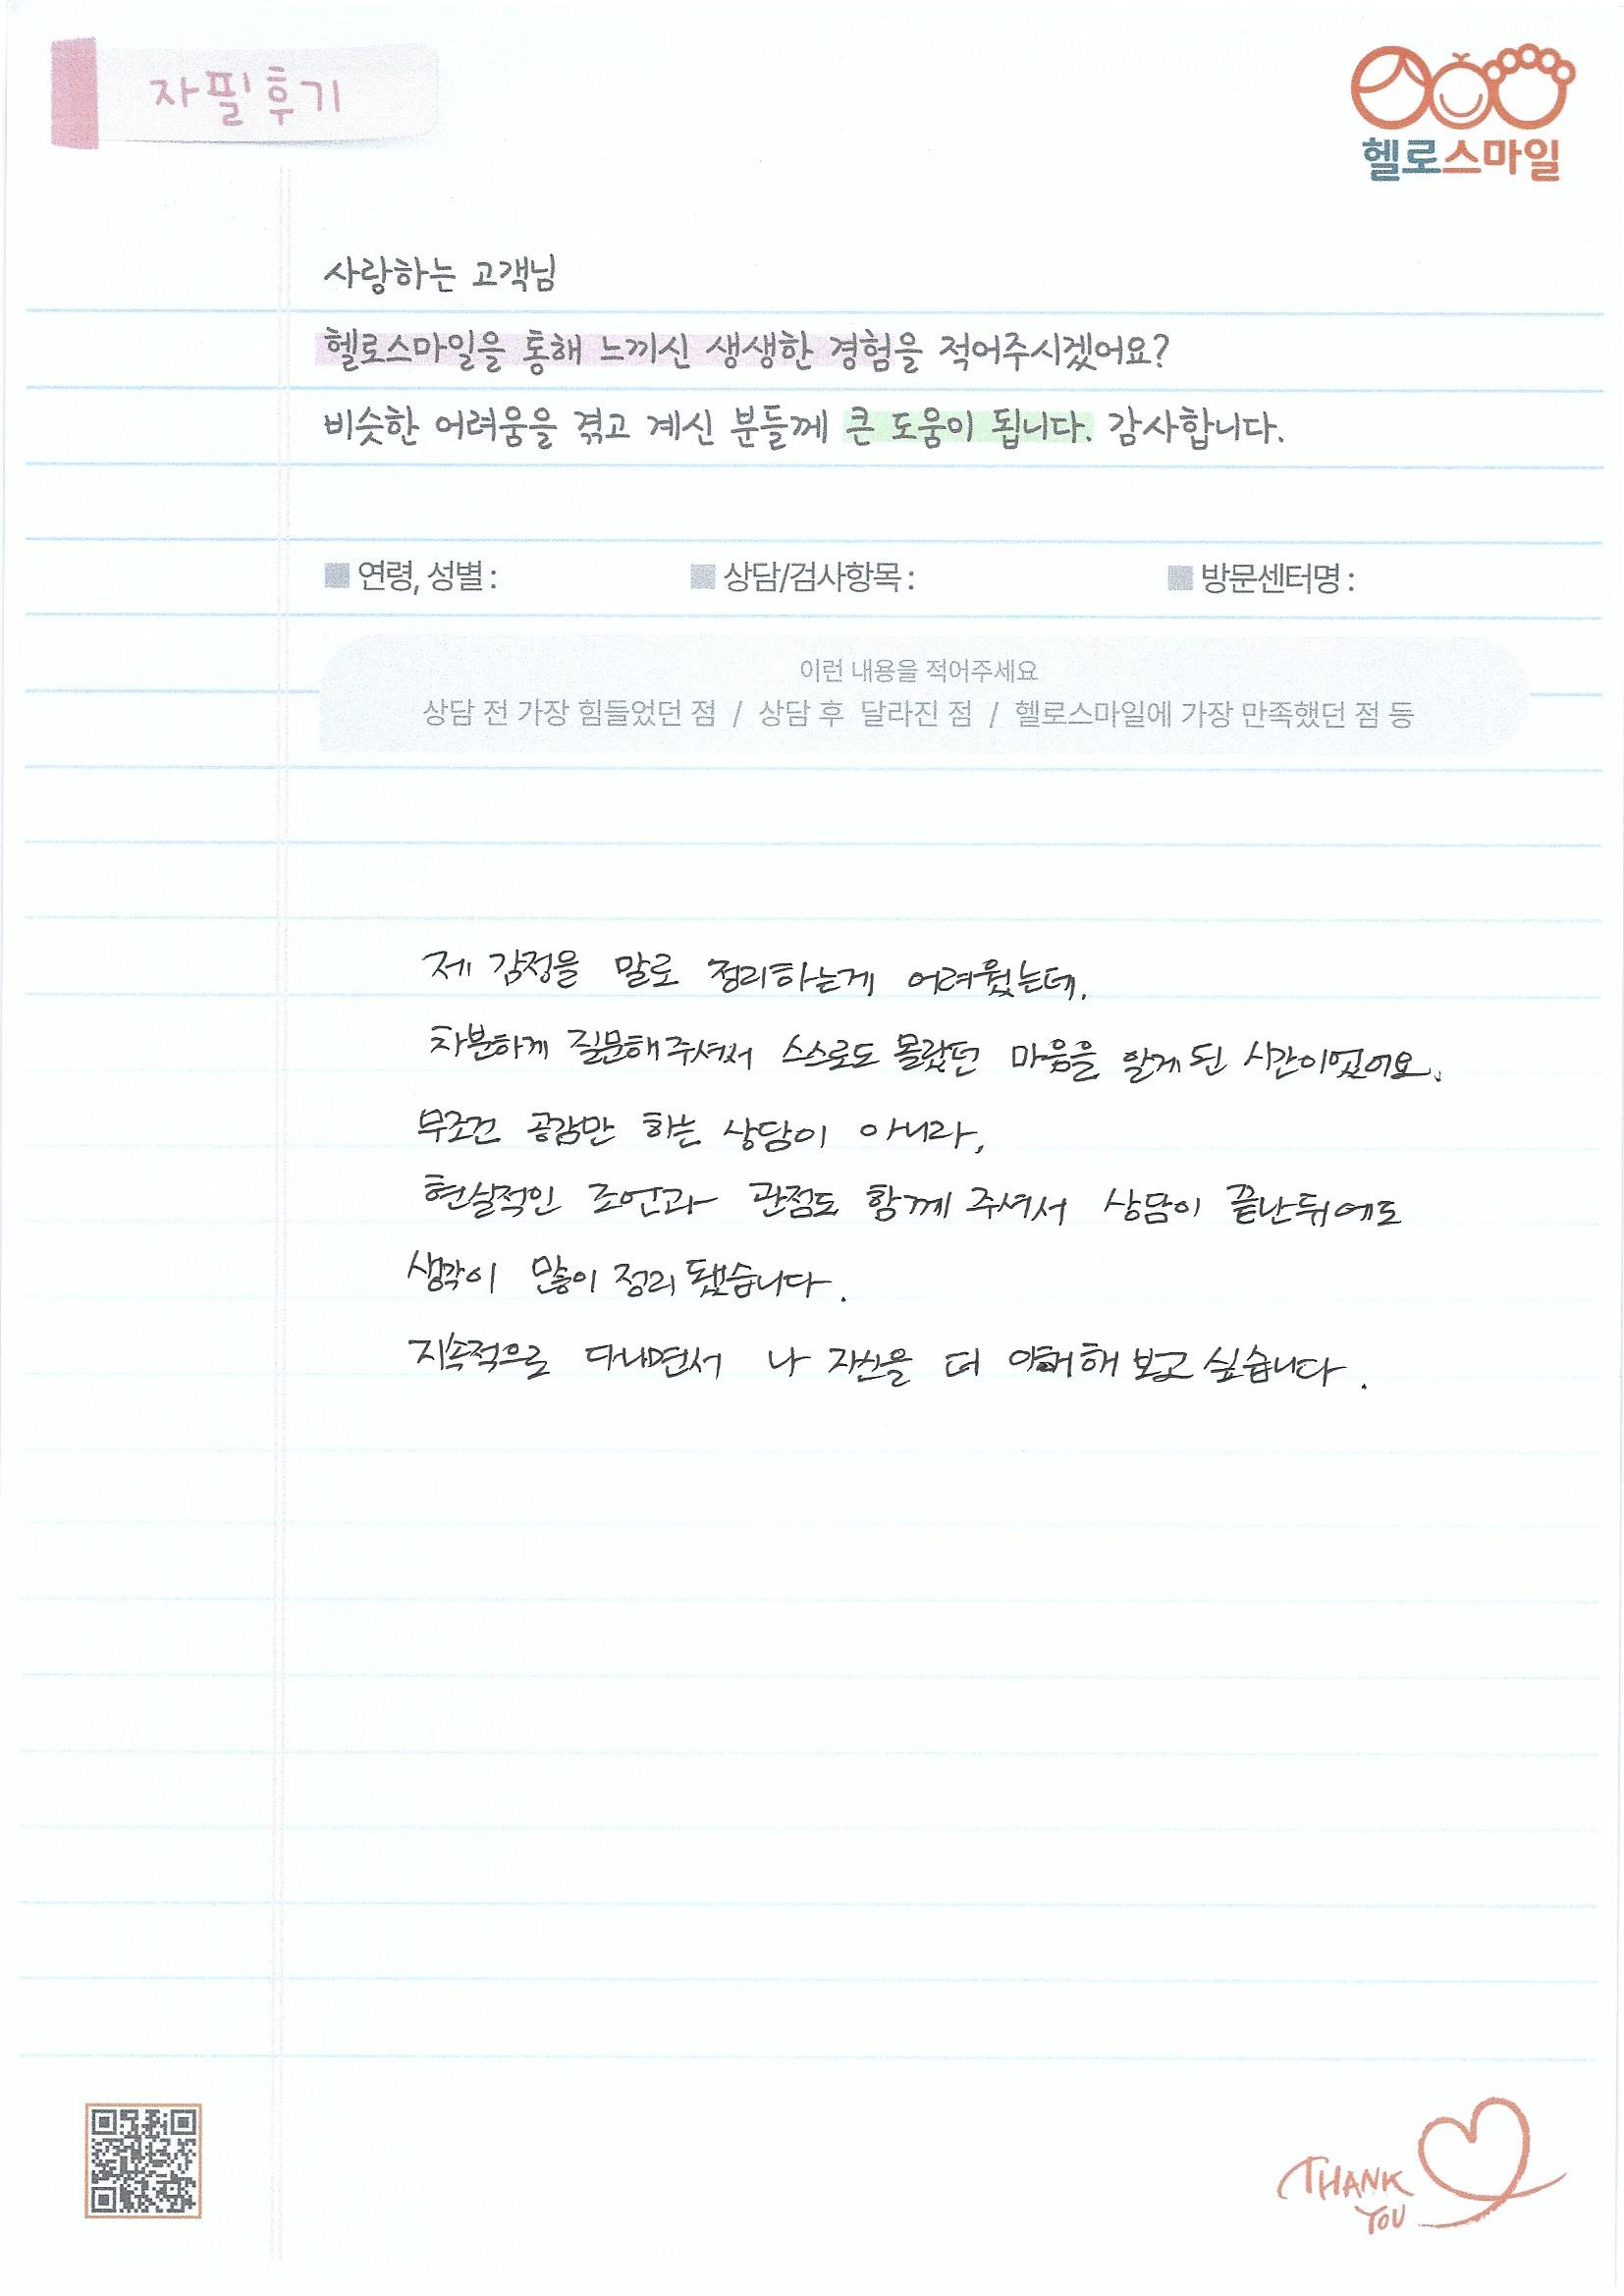 자필후기
헬로스마일
사랑하는 고객님
헬로스마일을 통해 느끼신 생생한 경험을 적어주시겠어요?
비슷한 어려움을 겪고 계신 분들께 큰 도움이 됩니다. 감사합니다.
연령, 성별 : 상담/검사항목 : 방문센터명 :
이런 내용을 적어주세요
상담 전 가장 힘들었던 점 / 상담 후 달라진 점 / 헬로스마일에 가장 만족했던 점 등
제 감정을 말로 정리하는게 어려웠는데,
차분하게 질문해주셔서 스스로도 몰랐던 마음을 알게 된 시간이었어요.
무조건 공감만 하는 상담이 아니라,
현실적인 조언과 관점도 함께 주셔서 상담이 끝난뒤에도
생각이 많이 정리 됐습니다.
지속적으로 다니면서 나 자신을 더 이해해 보고 싶습니다.
THANK
YOU